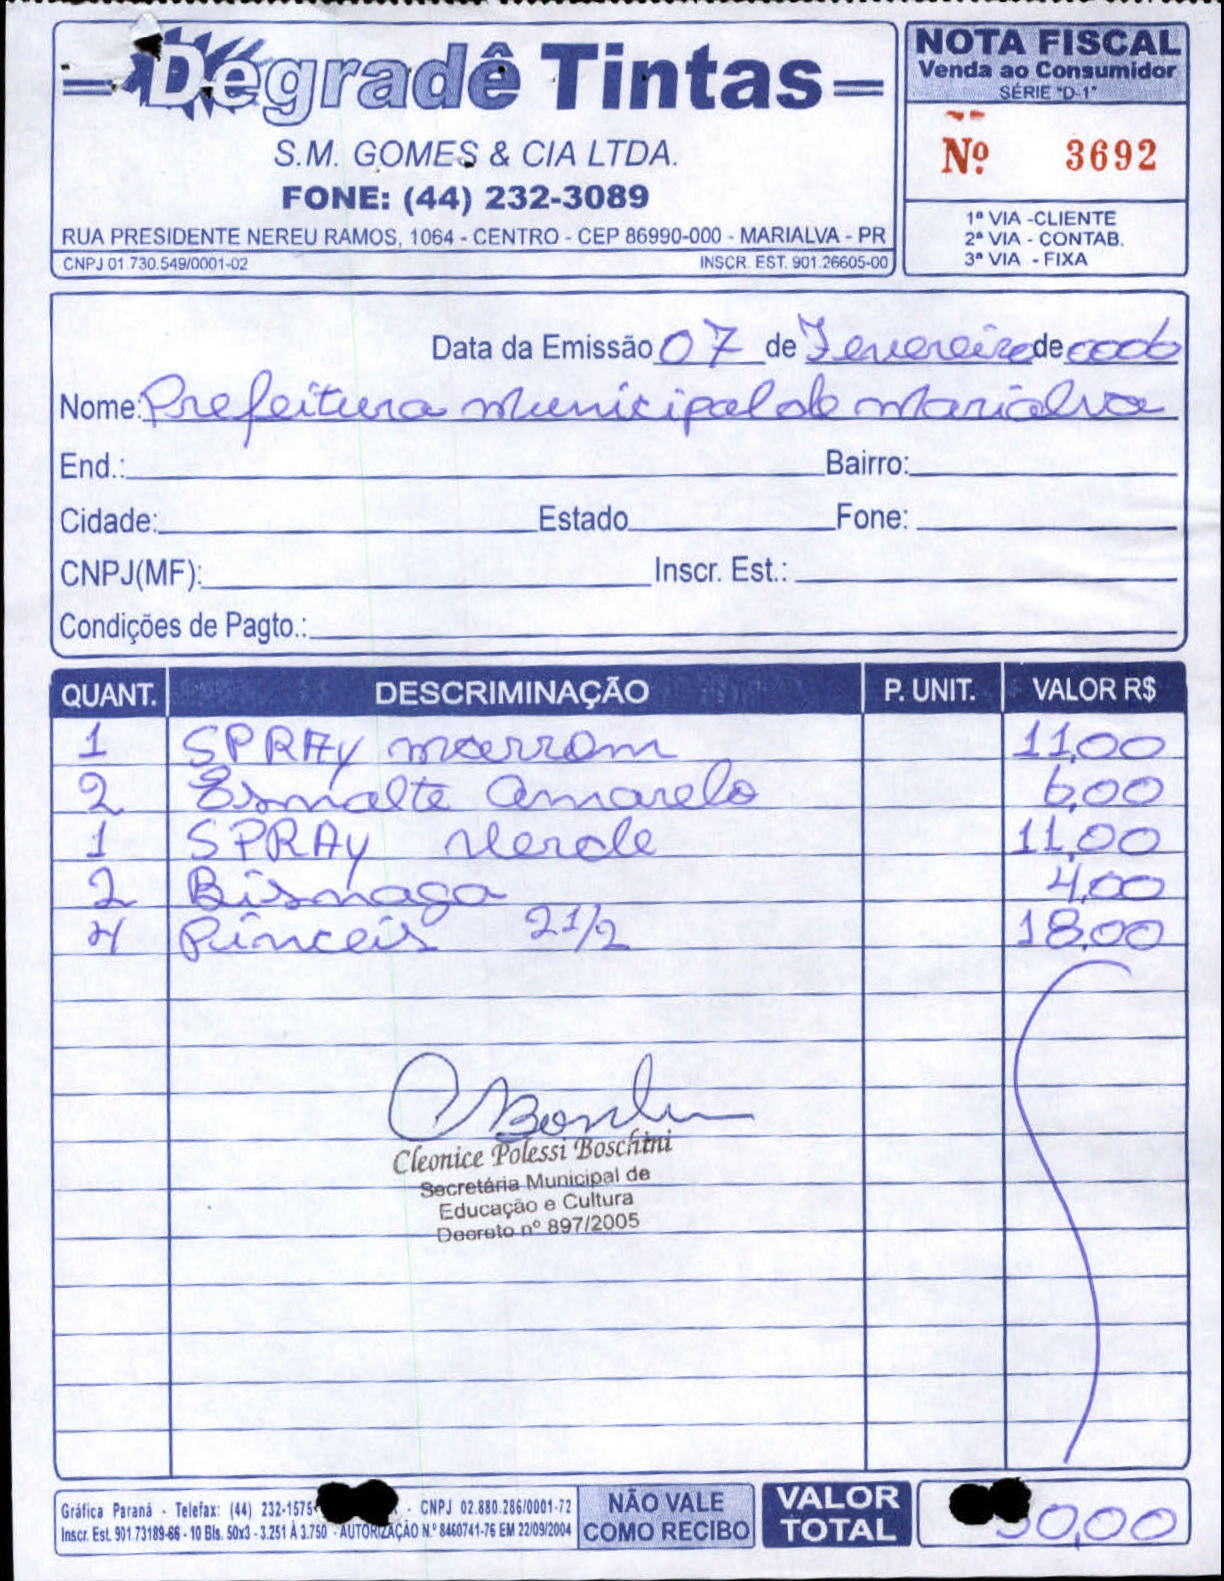 Degradê Tintas
S.M. GOMES & CIA LTDA.
FONE: (44) 232-3089
RUA PRESIDENTE NEREU RAMOS, 1064 - CENTRO - CEP 86990-000 - MARIALVA - PR
CNPJ 01.730.549/0001-02 INSCR. EST. 901.26605-00
NOTA FISCAL
Venda ao Consumidor
SÉRIE "D-1"
Nº 3692
1ª VIA -CLIENTE
2ª VIA - CONTAB.
3ª VIA - FIXA
Data da Emissão 07 de Fevereiro de 2006
Nome: Prefeitura Municipal de Marialva
End.: Bairro:
Cidade: Estado Fone:
CNPJ(MF): Inscr. Est.:
Condições de Pagto.:
QUANT. DESCRIMINAÇÃO P. UNIT. VALOR R$
1 SPRAY marrom 11,00
2 Esmalte Amarelo 6,00
1 SPRAY Verde 11,00
2 Bisnaga 4,00
4 Pinceis 2 1/2 18,00
Cleonice Polessi Boschini
Secretária Municipal de
Educação e Cultura
Decreto nº 897/2005
Gráfica Paraná - Telefax: (44) 232-1575 - CNPJ 02.880.286/0001-72
Inscr. Est. 901.73189-66 - 10 Bls. 50x3 - 3.251 À 3.750 - AUTORIZAÇÃO N.º 8460741-76 EM 22/09/2004
NÃO VALE
COMO RECIBO
VALOR
TOTAL
50,00